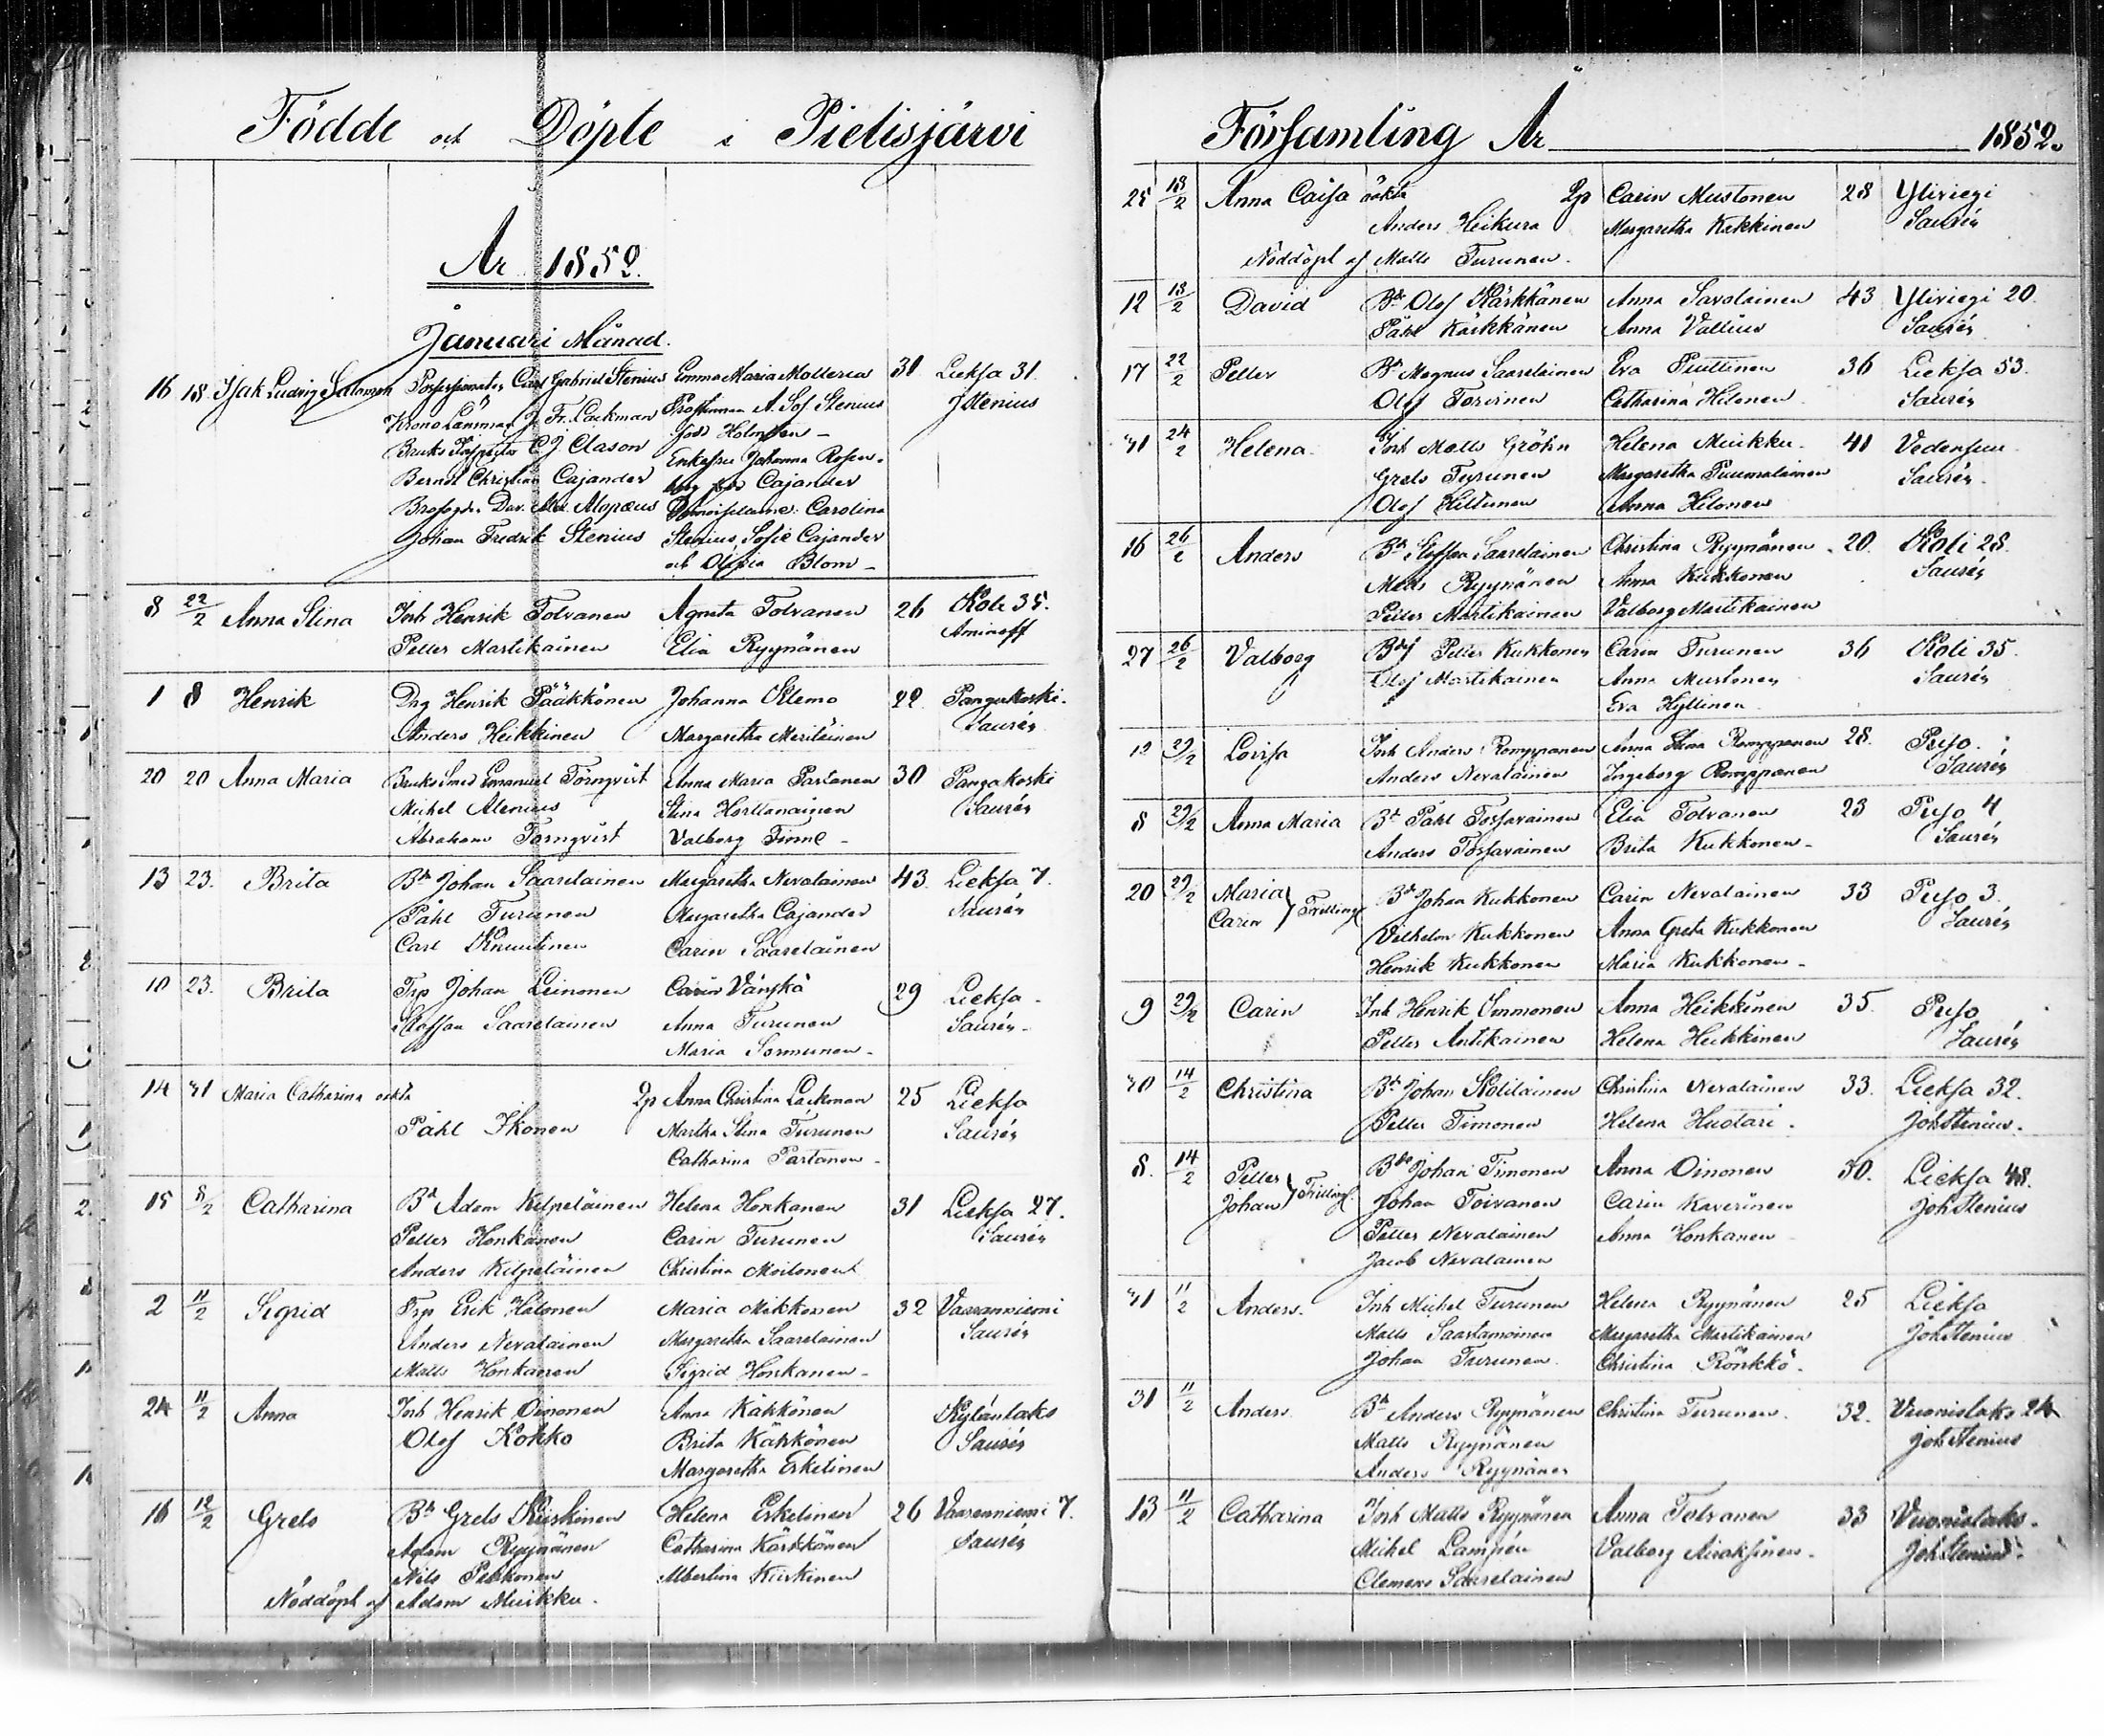 Födde och Döpte i Pielisjärvi
År 1852.
Januari Månad.
16 18 Isak Ludvig Salomon Possessionaten Carl Gabriel Stenius Emma Maria Molleria 31 Lieksa 31.
Krono Länsman J. Fr. Lackman Prostinnan A. Sof. Stenius J Stenius
Bruks Inspector C J Clason född Holmsten
Bernd Christian Cajander Enkefru Johanna Rosen-
berg född Cajander
Dav. Alopæus Demoisellerne Carolina
Johan Fredrik Stenius Stenius, Sofie Cajander
och Olivia Blom
8 22/2 Anna Stina Inh Henrik Tolvanen Agneta Tolvanen 26 Koli 35.
Petter Martikainen Elin Ryynänen Amineff
1 8 Henrik Drg Henrik Pääkkönen Johanna Olemo 22 Pangakoski.
Anders Heikkinen Margaretha Meriläinen Saurén
20 20 Anna Maria Bruks Smed Emanuel Törnqvist Anna Maria Partanen 30 Pangakoski
Michel Alenius Stina Horttanainen Saurén
Abraham Törnqvist Valborg Finne
13 23. Brita Bd Johan Saarelainen Margaretha Nevalainen 43 Lieksa 7.
Påhl Turunen Margaretha Cajander Saurén
Carl Knuutinen Carin Saarelainen
10 23. Brita Trp Johan Leinonen Carin Vänskä 29 Lieksa
Staffan Saarelainen Anna Turunen Saurén
Maria Sormunen
14 31 Maria Catharina oäkta Qp Anna Christina Lackman 25 Lieksa
Påhl Ikonen Martha Stina Turunen Saurén
Catharina Partanen
15 8/2 Catharina Bd Adam Kilpeläinen Helena Honkanen 31 Lieksa 27.
Petter Honkanen Carin Turunen Saurén
Anders Kilpeläinen Christina Moilonen
2 11/2 Sigrid Trp Erik Halonen Maria Mikkonen 32 Vaaranniemi
Anders Nevalainen Margaretha Saarelainen Saurén
Matts Honkanen Sigrid Honkanen
24 11/2 Anna Inh Henrik Oinonen Anna Käkkönen Kylänlaks
Olof Kokko Brita Käkkönen Saurén
Margaretha Eskelinen
16 12/2 Grels Bd Grels Kiiskinen Helena Eskelinen 26 Vaaranniemi 7.
Adam Ryynänen Catharina Kärkkänen Saurén
Nils Pehkonen Albertina Kiiskinen
Nöddöpt af Adam Muikku.
Församling År 1852.
25 13/2 Anna Caisa oäkta Qp Carin Mustonen 28 Yliviegi
Anders Heikura Margaretha Kukkinen Saurén
Nöddöpt af Matts Turunen.
12 13/2 David Bd Olof Kärkkänen Anna Savolainen 43 Yliviegi 20.
Påhl Kärkkänen Anna Vallius Saurén
17 22/2 Petter Bd Magnus Saarelainen Eva Piuttinen 36 Lieksa 53.
Olof Torvinen Catharina Hilonen Saurén
31 24/2 Helena Inh Matts Gröhn Helena Muikku. 41 Vedensuu
Grels Turunen Margaretha Puumalainen Saurén
Olof Hiltunen Anna Hilonen
16 26/2 Anders Bd Staffan Saarelainen Christina Ryynänen 20. Koli 28.
Matts Ryynänen Anna Kukkonen Saurén
Petter Martikainen Valborg Martikainen
27 26/2 Valborg Petter Kukkonen Carin Turunen 36 Koli 35.
Olof Martikainen Anna Mustonen Saurén
Eva Hyttinen
12 29/2 Lovisa Inh Anders Romppanen Anna Stina Romppanen 28. Puso
Anders Nevalainen Ingeborg Romppanen Saurén
8 29/2 Anna Maria Bd Påhl Tossavainen Elin Tolvanen 23 Puso 4
Anders Tossavainen Brita Kukkonen Saurén
20 29/2 Maria Bd Johan Kukkonen Carin Nevalainen 33 Puso 3.
Carin Tvillingr Vilhelm Kukkonen Anna Greta Kukkonen Saurén
Henrik Kukkonen Maria Kukkonen
9 29/2 Carin Inh Henrik Immonen Anna Heikkinen 35 Puso
Petter Antikainen Helena Heikkinen Saurén
30 14/2 Christina Bd Johan Kolilainen Christina Nevalainen 33. Lieksa 32.
Petter Timonen Helena Huotari. Joh Stenius.
8. 14/2 Petter Bd Johan Timonen Anna Oinonen 30. Lieksa 48.
Johan Tvillingr Johan Toivanen Carin Kaverinen Joh Stenius
Petter Nevalainen Anna Honkanen
Jacob Nevalainen
31 11/2 Anders. Inh Michel Turunen Helena Ryynänen 25 Lieksa
Matts Saastamoinen Margaretha Martikainen Joh Stenius
Johan Turunen. Christina Rönkkö.
31 11/2 Anders Bd Anders Ryynänen Christina Turunen. 32. Vuonislaks 24
Matts Ryynänen Joh Stenius
Anders Ryynänen
13 11/2 Catharina Inh Matts Ryynänen Anna Tolvanen 33 Vuonislaks.
Michel Lampén Valborg Airaksinen. Joh Stenius.
Clemens Saarelainen